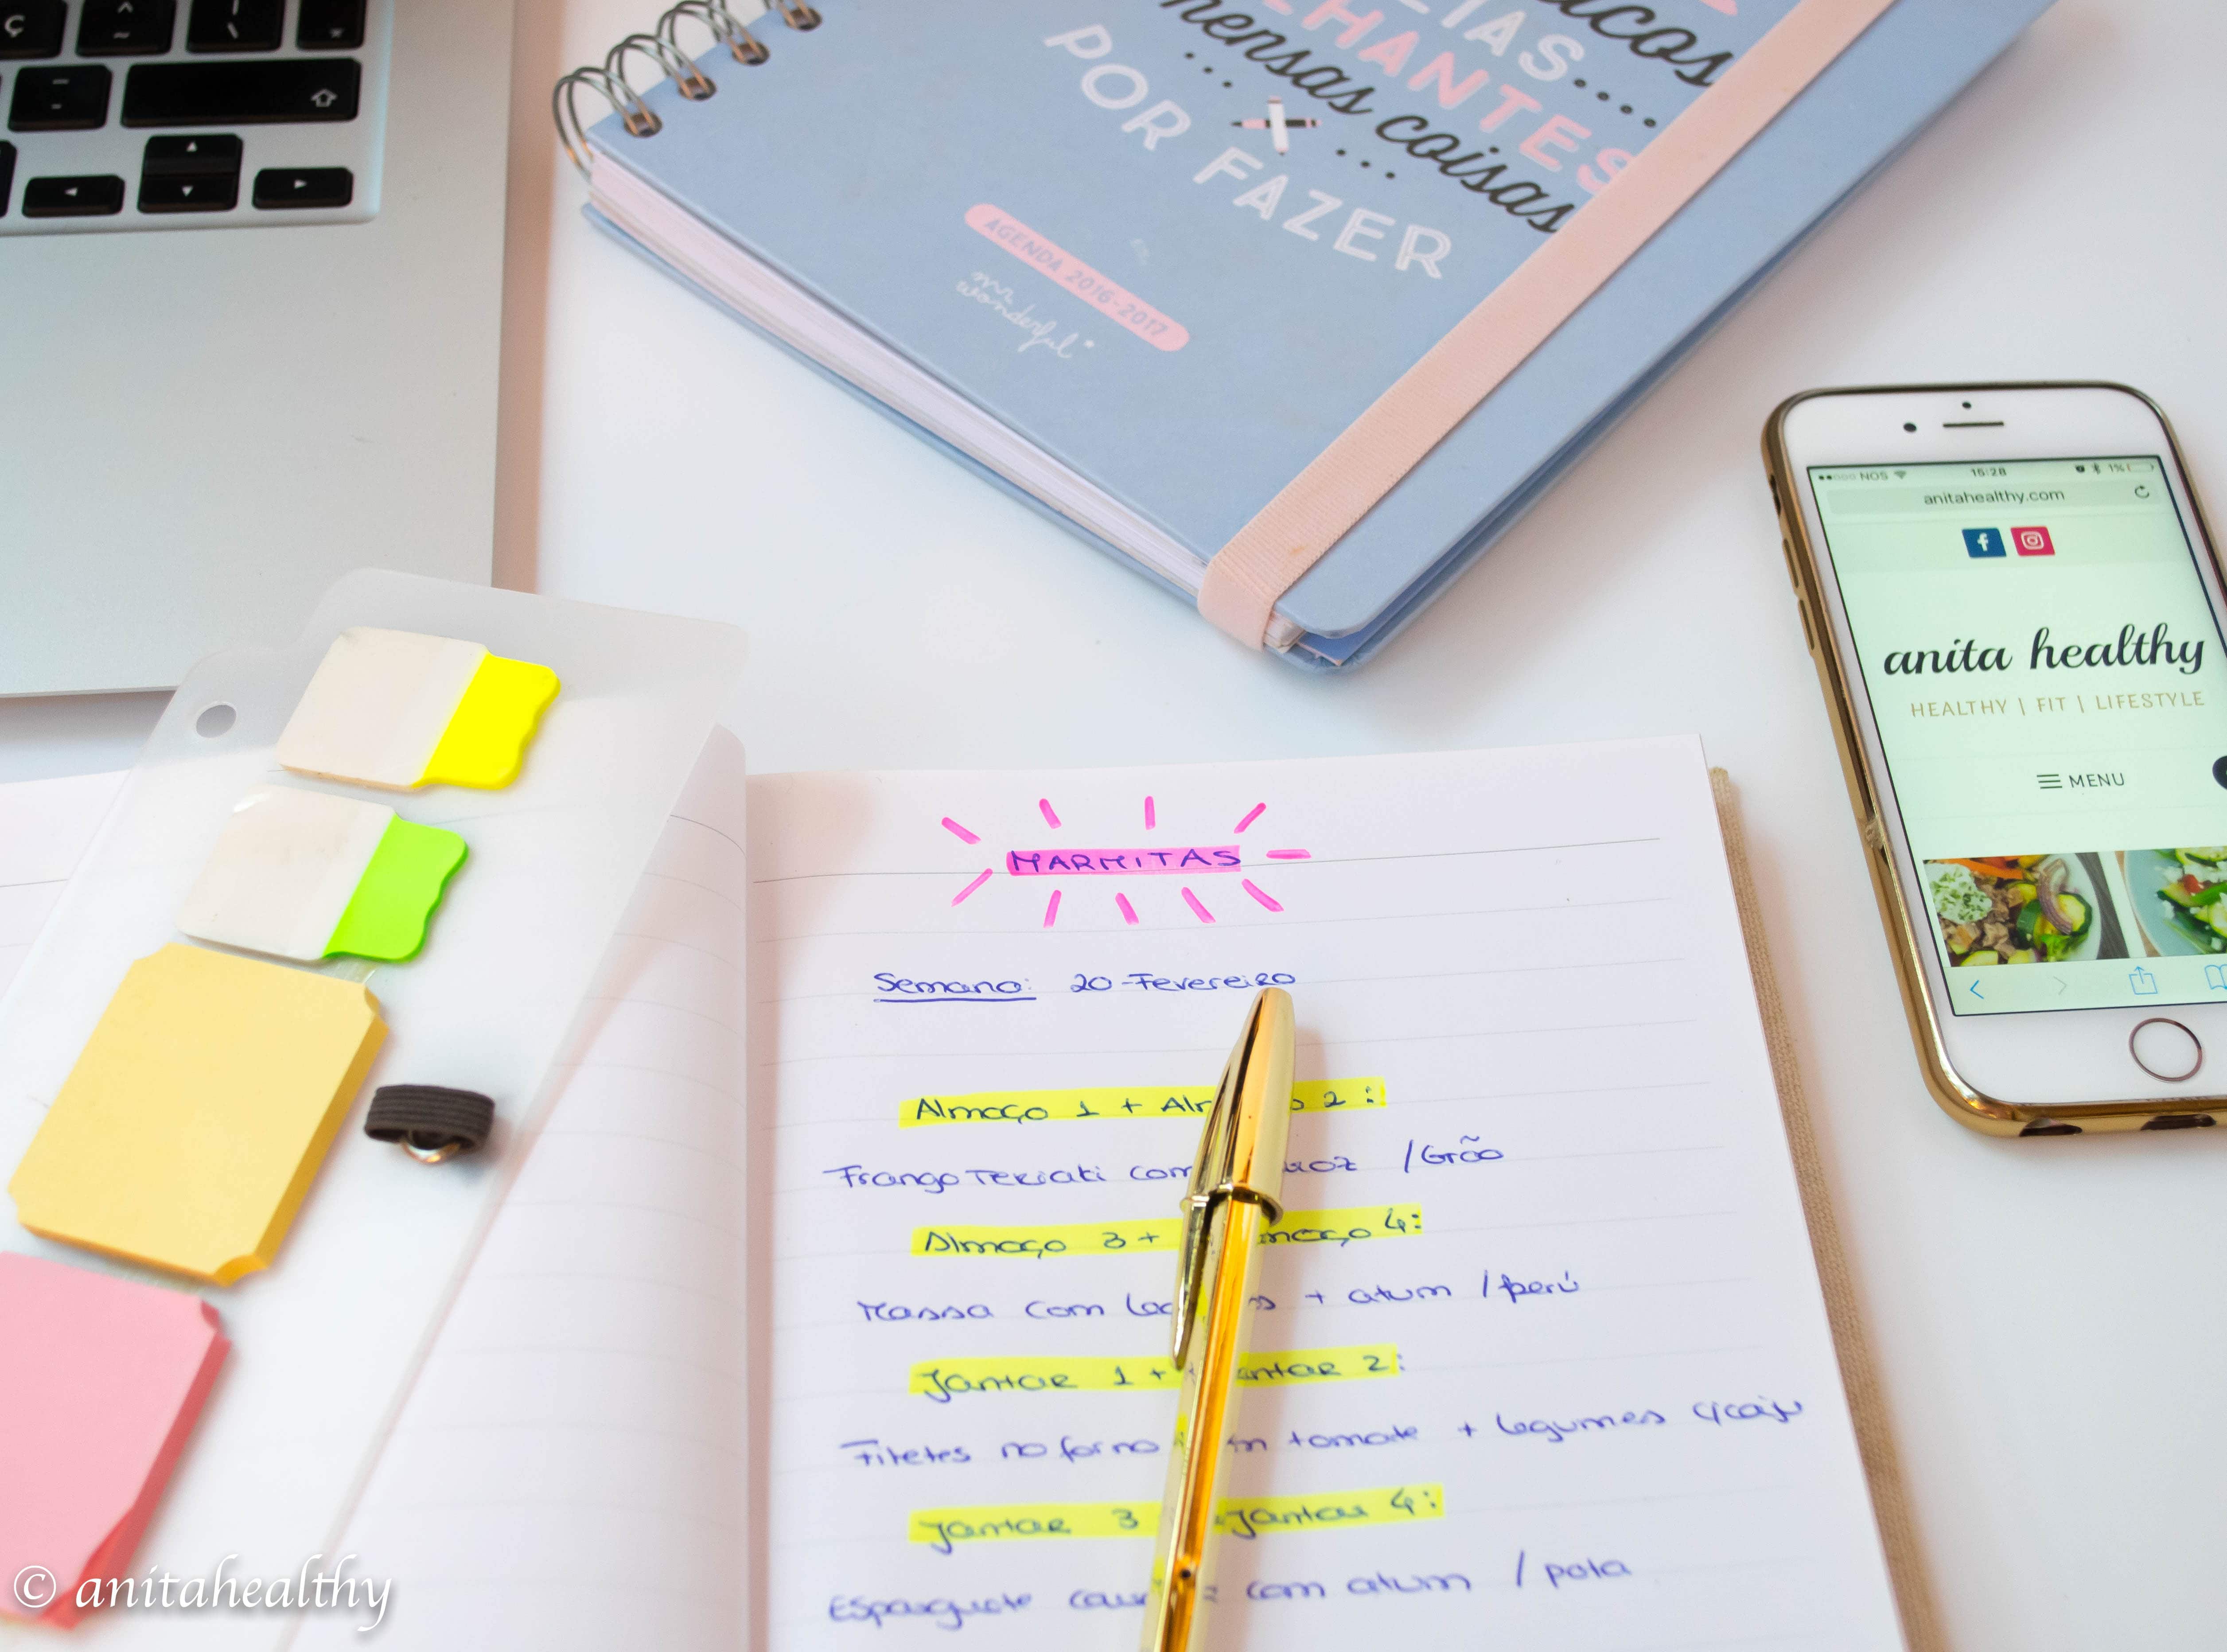 ç
acos
LIAS....
LHANTES
mensas coisas
... ...
POR FAZER
AGENDA 2016-2017
mr
wonderful*
NOS 15:28 1%
anitahealthy.com
f
anita healthy
HEALTHY | FIT | LIFESTYLE
MENU
MARMITAS
Semana: 20-Fevereiro
Almoço 1 + Alm o 2:
Frango Teriaki com roz /Grão
Almoço 3 + moço 4:
Massa com + atum /perú
Jantar 1 + antar 2:
Filetes no forno m tomate + legumes
Jantar 3 Jantar 4:
Esparguete com atum / pota
© anitahealthy